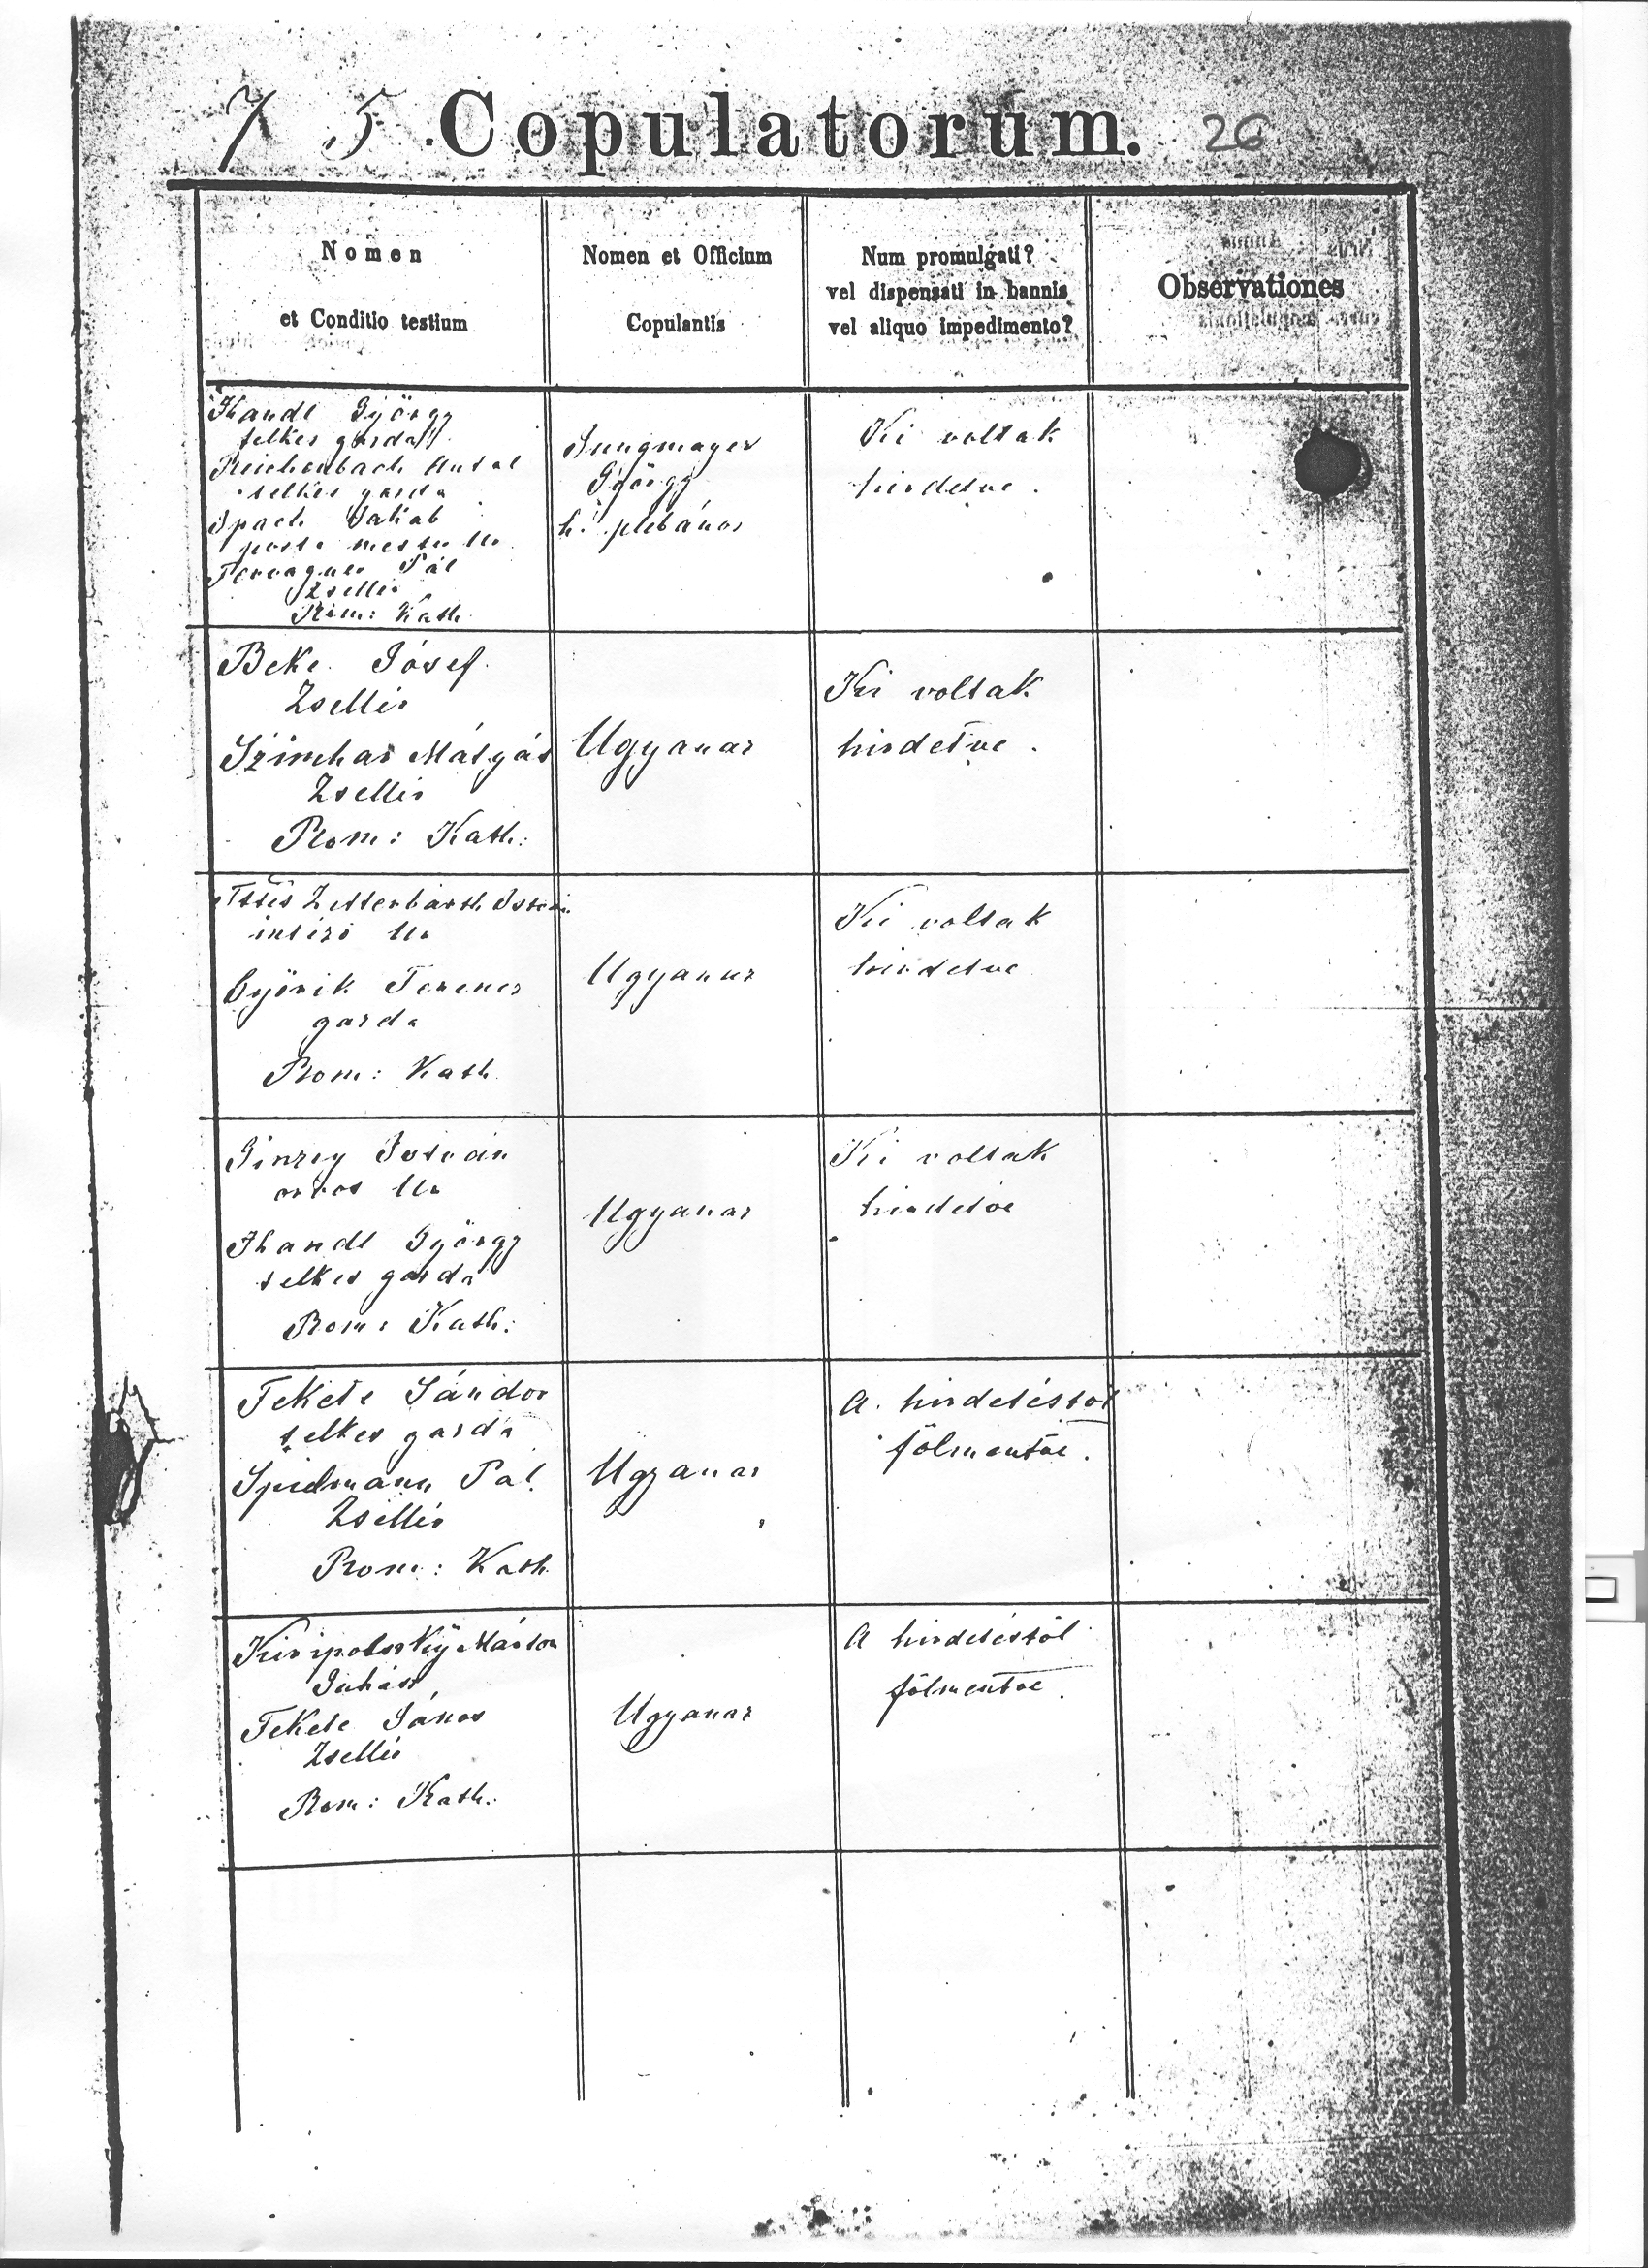 75. Copulatorum. 26
Nomen
et Conditio testium
Nomen et Officium
Copulantis
Num promulgati?
vel dispensati in bannis
vel aliquo impedimento?
Observationes
Handl György
telkes gazda
Reichenbach Antal
telkes gazda
Spach Jakab
posta mester Ur
Pál
Zsellér
Rom: Kath.
Jungmayer
György
h. plebános
Ki voltak
hirdetve.
Beke Jósef
Zsellér
Mátyás
Zsellér
Rom: Kath:
Ugyanaz
Ki voltak
hirdetve.
Ur
Győrik Ferencz
gazda
Rom: Kath
Ugyanaz
Ki voltak
hirdetve
István
orvos Ur
Handl György
telkes gazda
Rom: Kath:
Ugyanaz
Ki voltak
hirdetve
Fekete Sándor
telkes gazda
Spielmann Pál
Zsellér
Rom: Kath
Ugyanaz
A hirdetéstől
fölmentve.
Márton
Juhász
Fekete János
Zsellér
Rom: Kath:
Ugyanaz
A hirdetéstől
fölmentve.